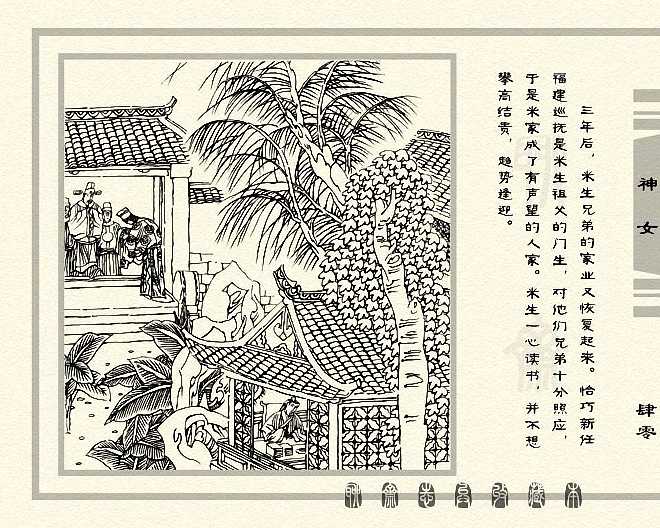 三年后，米生兄弟的家业又恢复起来。恰巧新任
福建巡抚是米生祖父的门生，对他们兄弟十分照应，
于是米家成了有声望的人家。米生一心读书，并不想
攀高结贵，趋势逢迎。
神女
肆零